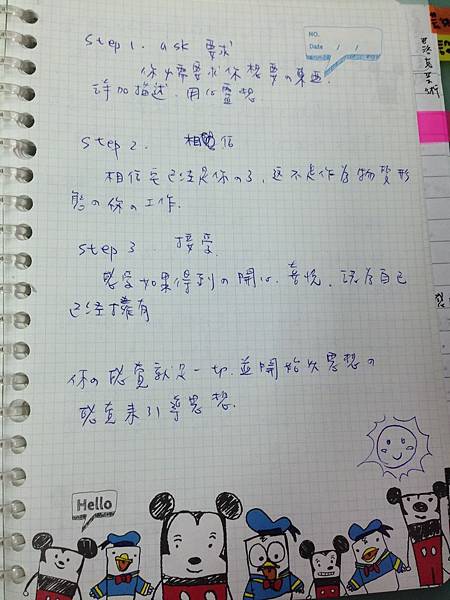 NO.
Date / /
Step 1. ask 要求
你必需要求你想要の東西.
詳加描述. 用心靈想
Step 2. 相信
相信它已經是你の了, 這不是作為物質形
態の你の工作.
Step 3. 接受.
感受如果得到の開心. 喜悅. 認為自己
已经擁有
你の感覺就是一切. 並開始以思想の
感覺来引導思想.
Hello